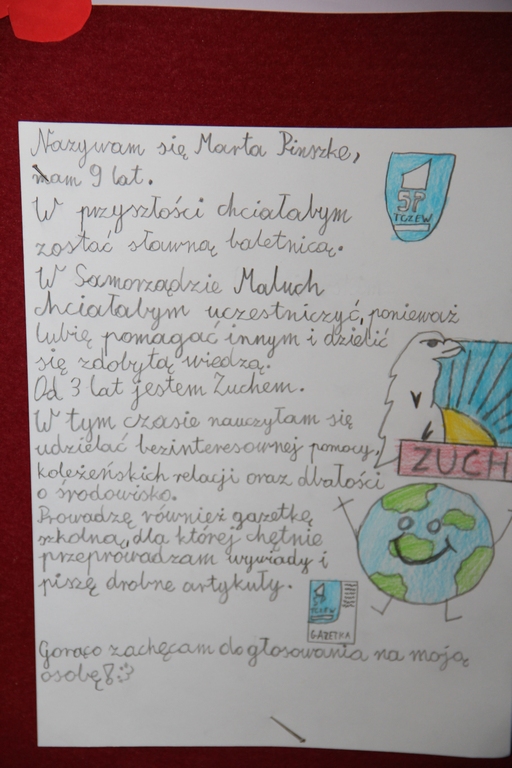 Nazywam się Marta Pinszke,
mam 9 lat.
W przyszłości chciałabym
zostać sławną baletnicą.
W Samorządzie Maluch
chciałabym uczestniczyć, ponieważ
lubię pomagać innym i dzielić
się zdobytą wiedzą.
Od 3 lat jestem Zuchem.
W tym czasie nauczyłam się
udzielać bezinteresownej pomocy,
koleżeńskich relacji oraz dbałości
o środowisko.
Prowadzę również gazetkę
szkolną, dla której chętnie
przeprowadzam wywiady i
piszę drobne artykuły.
Gorąco zachęcam do głosowania na moją
osobę!
1
SP
TCZEW
ZUCH
SP
TCZEW
GAZETKA